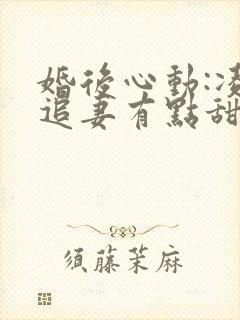 婚後心動:凌
追妻有點甜
須藤茉麻